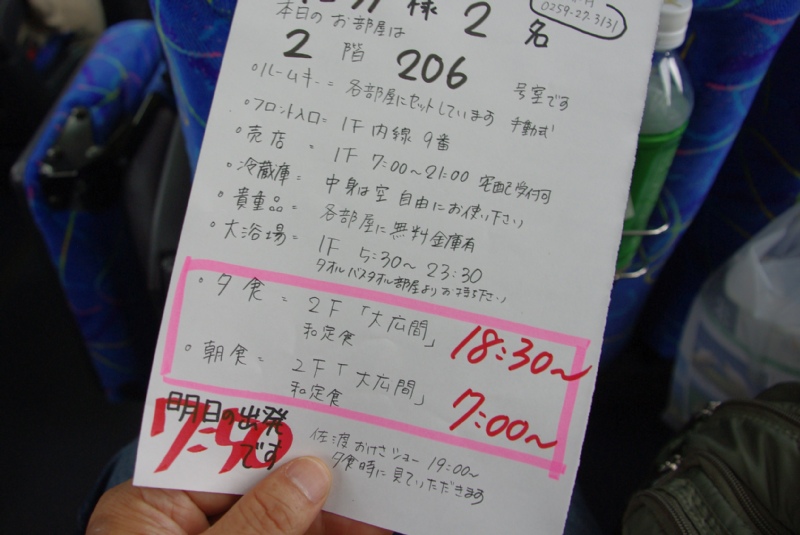 0259-27-3131
様 2 名
本日のお部屋は
2 階 206 号室です
◦ルームキー = 各部屋にセットしています 手動式
◦フロント入口 = 1F 内線 9番
◦売店 = 1F 7:00〜21:00 宅配受付可
◦冷蔵庫 = 中身は空 自由にお使い下さい
◦貴重品 = 各部屋に無料金庫有
◦大浴場 = 1F 5:30〜23:30
タオルバスタオル部屋よりお持ち下さい
◦夕食 = 2F「大広間」 18:30〜
和定食
◦朝食 = 2F「大広間」 7:00〜
和定食
明日の出発
です
佐渡おけさショー 19:00〜
夕食時に見ていただきます